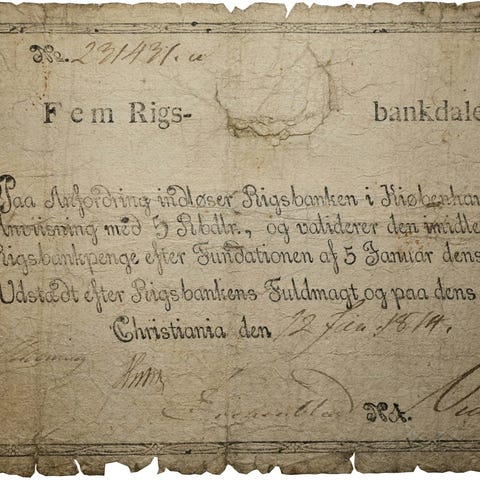 No. 231431.a
Fem Rigs- bankdale
Paa Anfordring indløser Rigsbanken i Kiøbenhav
Anviisning med 5 Rbdlr., og validerer den imidle
Rigsbankpenge efter Fundationen af 5 Januar dens
Udstædt efter Rigsbankens Fuldmagt og paa dens
Christiania den 12 Jan. 1814.
No.